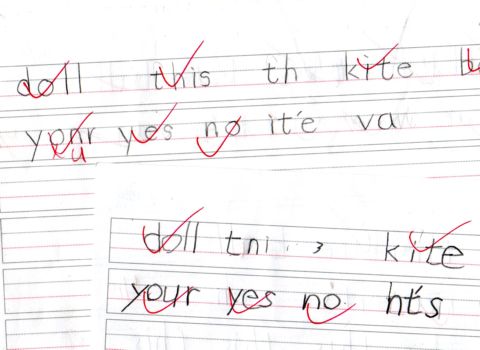 doll this th kite
yes no it'e va
doll tni kite
your yes no ht's